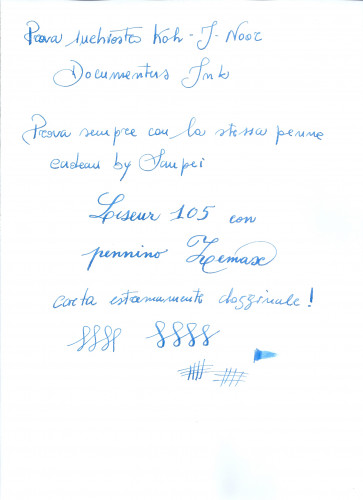 Prova inchiostro Koh-I-Noor
Documentus Ink
Prova sempre con la stessa penna
cadeau by Sampei
Liseur 105 con
pennino Zemax
carta estremamente dozzinale!